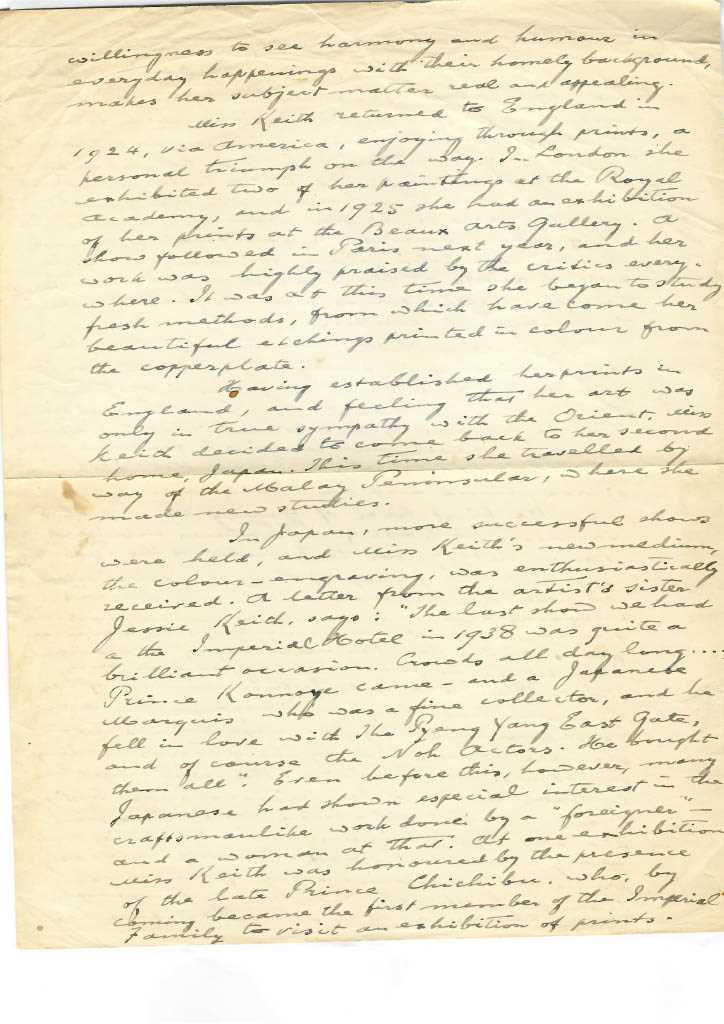 willingness to see harmony and humour in
everyday happenings with their homely background,
makes her subject matter real and appealing.
Miss Keith returned to England in
1924, via America, enjoying through prints, a
personal triumph on the way. In London she
exhibited two of her paintings at the Royal
Academy, and in 1925 she had an exhibition
of her prints at the Beaux Arts Gallery. A
show followed in Paris next year, and her
work was highly praised by the critics every-
where. It was at this time she began to study
fresh methods, from which have come her
beautiful etchings printed in colour from
the copperplate.
Having established her prints in
England, and feeling that her art was
only in true sympathy with the Orient, Miss
Keith decided to come back to her second
home, Japan. This time she travelled by
way of the Malay Peninsular, where she
made new studies.
In Japan, more successful shows
were held, and Miss Keith's new medium,
the colour-engraving, was enthusiastically
received. A letter from the artist's sister
Jessie Keith, says: "The last show we had
a the Imperial Hotel in 1938 was quite a
brilliant occasion. Crowds all day long....
Prince Konnoye came - and a Japanese
Marquis who was a fine collector, and he
fell in love with The Pyeng Yang East Gate,
and of course the Noh Actors. He bought
them all". Even before this, however, many
Japanese had shown especial interest in the
craftsmanlike work done by a "foreigner" -
and a woman at that. At one exhibition
Miss Keith was honoured by the presence
of the late Prince Chichibu, who, by
coming became the first member of the Imperial
Family to visit an exhibition of prints.